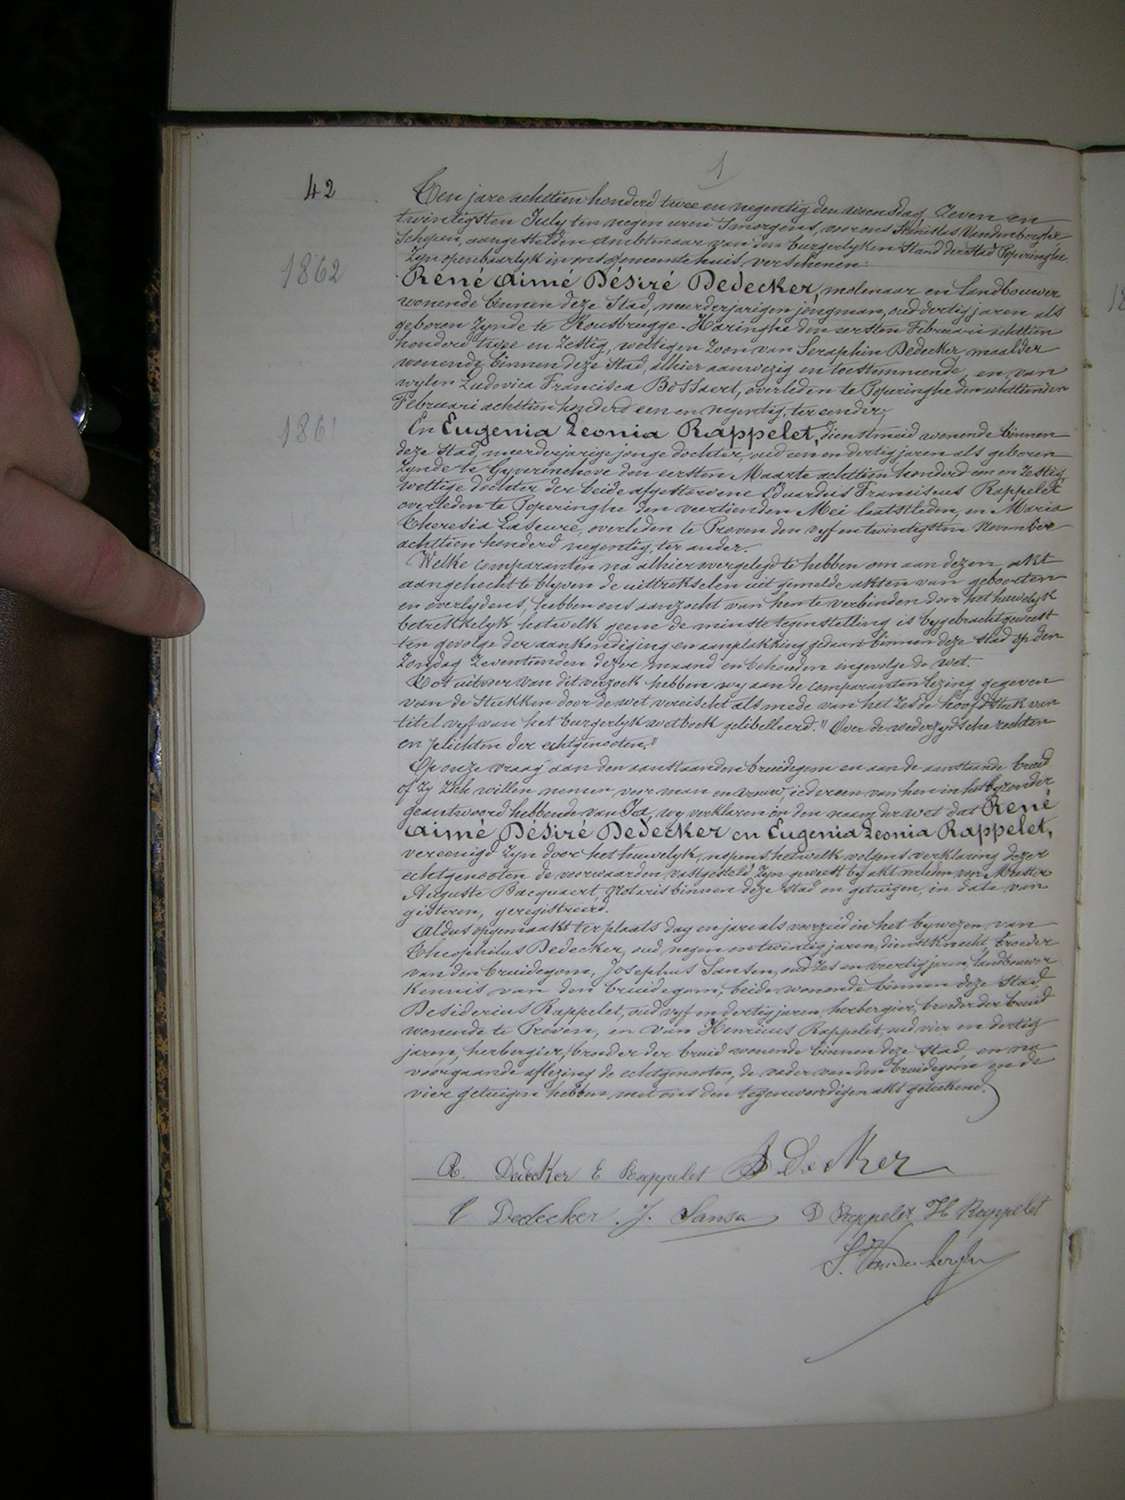 1
42
Ten jare achttien honderd twee en negentig den woensdag Zeven en
twintigsten July ten negen uren s'morgens, voor ons Stanislas Vandenberghe
Schepen, aangestelden ambtenaar van den burgerlyken stand der stad Poperinghe
Zyn openbaarlyk in ons gemeentehuis verschenen:
1862
René Aimé Désiré Dedecker, molenaar en landbouwer
wonende binnen deze Stad, meerderjarigen jongman, oud dertig jaren als
geboren Zynde te Rousbrugge-Haringhe den eersten Februari achttien
honderd twee en Zestig, wettigen Zoon van Seraphin Dedecker, maalder
wonende binnen deze Stad, alhier aanwezig en toestemmende, en van
wylen Ludovica Francisca Bossaert, overleden te Poperinghe den achttienden
Februari achttien honderd een en negentig, ter eender;
1861
En Eugenia Leonia Rappelet, dienstmeid wonende binnen
deze Stad, meerderjarige jonge dochter, oud een en dertig jaren als geboren
Zynde te Gyverinchove den eersten Maarte achttien honderd een en Zestig
wettige dochter der beide afgestorvene Eduardus Franciscus Rappelet
overleden te Poperinghe den veertienden Mei laatstleden, en Maria
Theresia Laseure, overleden te Proven den vyf en twintigsten November
achttien honderd negentig, ter ander.
Welke comparanten na alhier overgelegd te hebben om aan dezen akt
aangehecht te blyven de uittrekselen uit gemelde akten van geboorten
en overlydens, hebben ons aanzocht van hen te verbinden door het huwelyk
betrekkelyk hetwelk geene de minste tegenstelling is bygebracht geweest
ten gevolge der aankondiging en aanplakking gedaan binnen deze stad op den
Zondag Zeventienden dezer maand en behouden ingevolge de wet.
Tot uitvoer van dit verzoek hebben wy aan de comparanten lezing gegeven
van de Stukken door de wet vereischt als mede van het Zesde hoofdstuk van
titel vyf van het burgerlyk wetboek gelibelleerd "Over de wederzydsche rechten
en plichten der echtgenooten."
Op onze vraag aan den aanstaanden bruidegom en aan de aanstaande bruid
of Zy Zich willen nemen voor man en vrouw, iedereen van hen in het byzonder
geantwoord hebbende van Ja, wy verklaren in den naam der wet dat René
Aimé Désiré Dedecker en Eugenia Leonia Rappelet,
vereenigd Zyn door het huwelyk, nopens hetwelk volgens verklaring dezer
echtgenooten de voorwaarden vastgesteld Zyn geweest by akt verleden voor Meester
Auguste Bacquaert, Notaris binnen deze Stad en getuigen, in data van
gisteren, geregistreerd.
Aldus opgemaakt ter plaats, dag en jare als voorzeid in het bywezen van
Theophilus Dedecker, oud negen en twintig jaren, dienstknecht, broeder
van den bruidegom, Josephus Sansen, oud Zes en veertig jaren, landbouwer
kennis van den bruidegom, beide wonende binnen deze Stad,
Desiderius Rappelet, oud vyf en dertig jaren, herbergier, broeder der bruid
wonende te Proven, en van Henricus Rappelet, oud vier en dertig
jaren, herbergier, broeder der bruid wonende binnen deze stad, en na
voorgaande aflezing de echtgenooten, de vader van den bruidegom en de
vier getuigen hebben met ons den tegenwoordigen akt geteekend.
R. Dedecker E Rappelet S Dedecker
T Dedecker J. Sansen D Rappelet H Rappelet
S. Vandenberghe